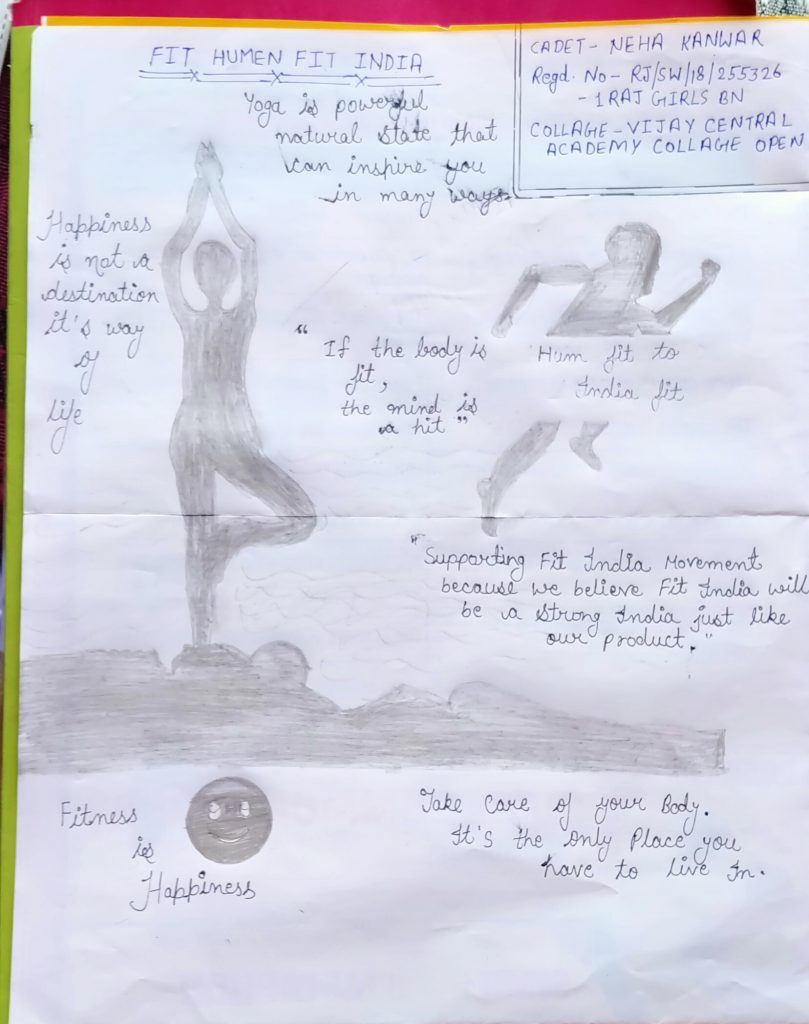 FIT HUMEN FIT INDIA
CADET- NEHA KANWAR
Regd. No- RJ/SW/18/255326
- 1 RAJ GIRLS BN
COLLAGE-VIJAY CENTRAL
ACADEMY COLLAGE OPEN
Yoga is powerful
natural state that
can inspire you
in many ways
Happiness
is not a
destination
it's way
of
life
" If the body is
fit,
the mind is
a hit "
Hum fit to
India fit
" Supporting Fit India Movement
because we believe Fit India will
be a strong India just like
our product. "
Fitness
is
Happiness
Take Care of your Body.
It's the only Place you
have to live In.